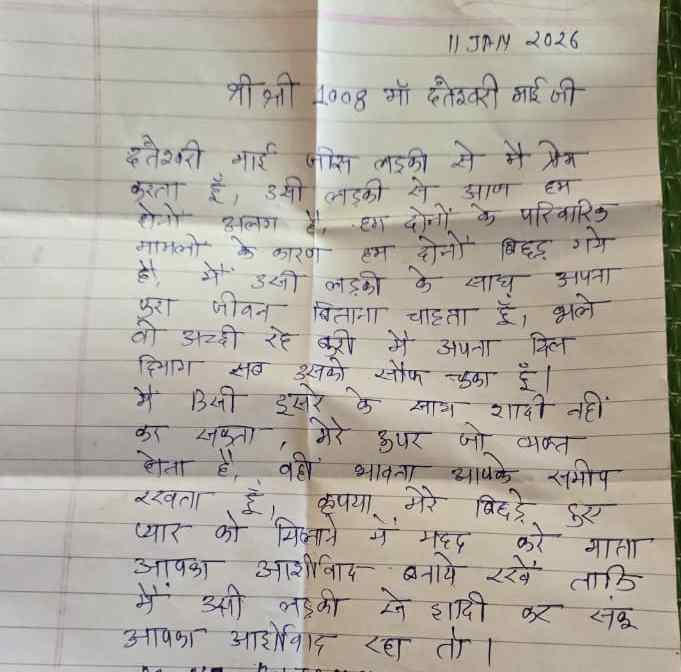 11 JAN 2026
श्री श्री 1008 माँ दंतेश्वरी माई जी
दंतेश्वरी माई जीस लड़की से मै प्रेम
करता हूँ, उसी लड़की से आज हम
दोनों अलग है, हम दोनों के परिवारिक
मामलो के कारण हम दोनों बिछड़ गये
है, मैं उसी लड़की के साथ अपना
पुरा जीवन बिताना चाहता हूँ, भले
वो अच्छी रहे बुरी मै अपना दिल
दिमाग सब उसको सौफ चुका हूँ।
मै किसी दुसरे के साथ शादी नहीं
कर सकता, मेरे ऊपर जो व्यक्त
होता है, वहीं भावना आपके समीप
रखता हूँ, कृपया मेरे बिछड़े हुए
प्यार को मिलाने में मदद करे माता
आपका आशीर्वाद बनाये रखें ताकि
मैं उसी लड़की से शादी कर सकू
आपका आशीर्वाद रहा तो।